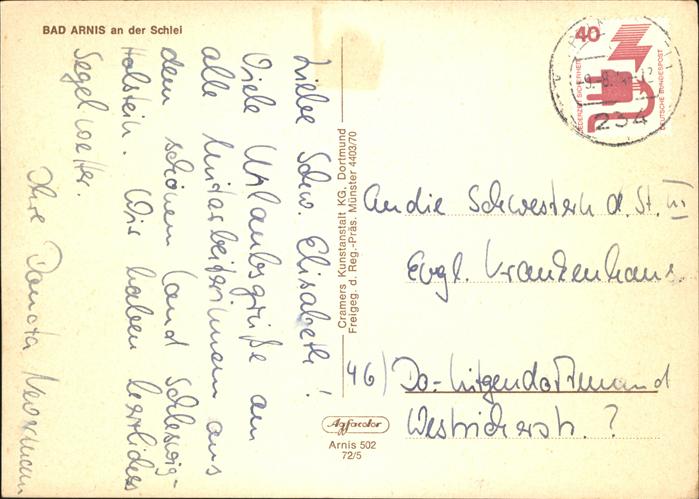 BAD ARNIS an der Schlei
Liebe Schw. Elisabeth!
Viele Urlaubsgrüße an
alle Mitarbeiterinnen aus
dem schönen Land Schleswig-
Holstein. Wir haben herrliches
Segelwetter.
Ihre Danuta
Cramers Kunstanstalt KG, Dortmund
Freigeg. d. Reg.-Präs. Münster 4403/70
Agfacolor
Arnis 502
72/5
40
JEDERZEIT SICHERHEIT
DEUTSCHE BUNDESPOST
234
An die Schwestern d. St. III
Evgl. Krankenhaus.
46) Do-Lütgendortmund
Westricherstr. ?